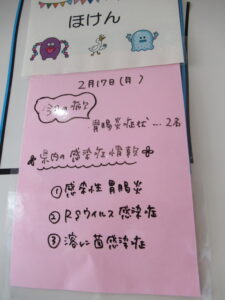 ほけん
2月17日(月)
今日の病気
胃腸炎症状…2名
県内の感染症情報
①感染性胃腸炎
②RSウイルス感染症
③溶レン菌感染症